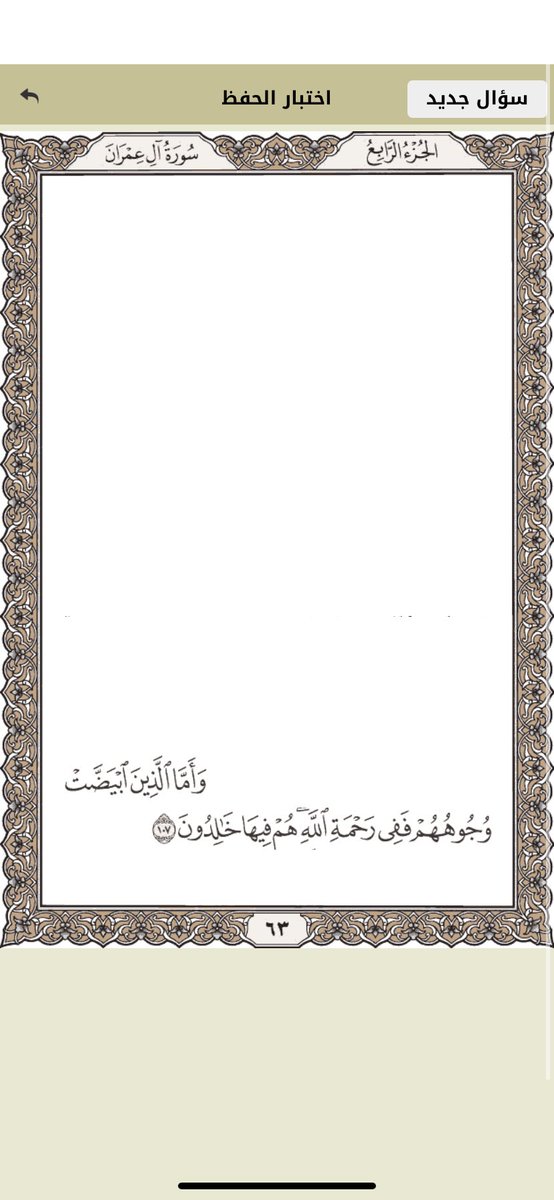 سؤال جديد
اختبار الحفظ
الجُزْءُ الرَّابِعُ
سُورَةُ آلِ عِمْرَانَ
وَأَمَّا ٱلَّذِينَ ٱبْيَضَّتْ
وُجُوهُهُمْ فَفِى رَحْمَةِ ٱللَّهِۖ هُمْ فِيهَا خَٰلِدُونَ ١٠٧
٦٣